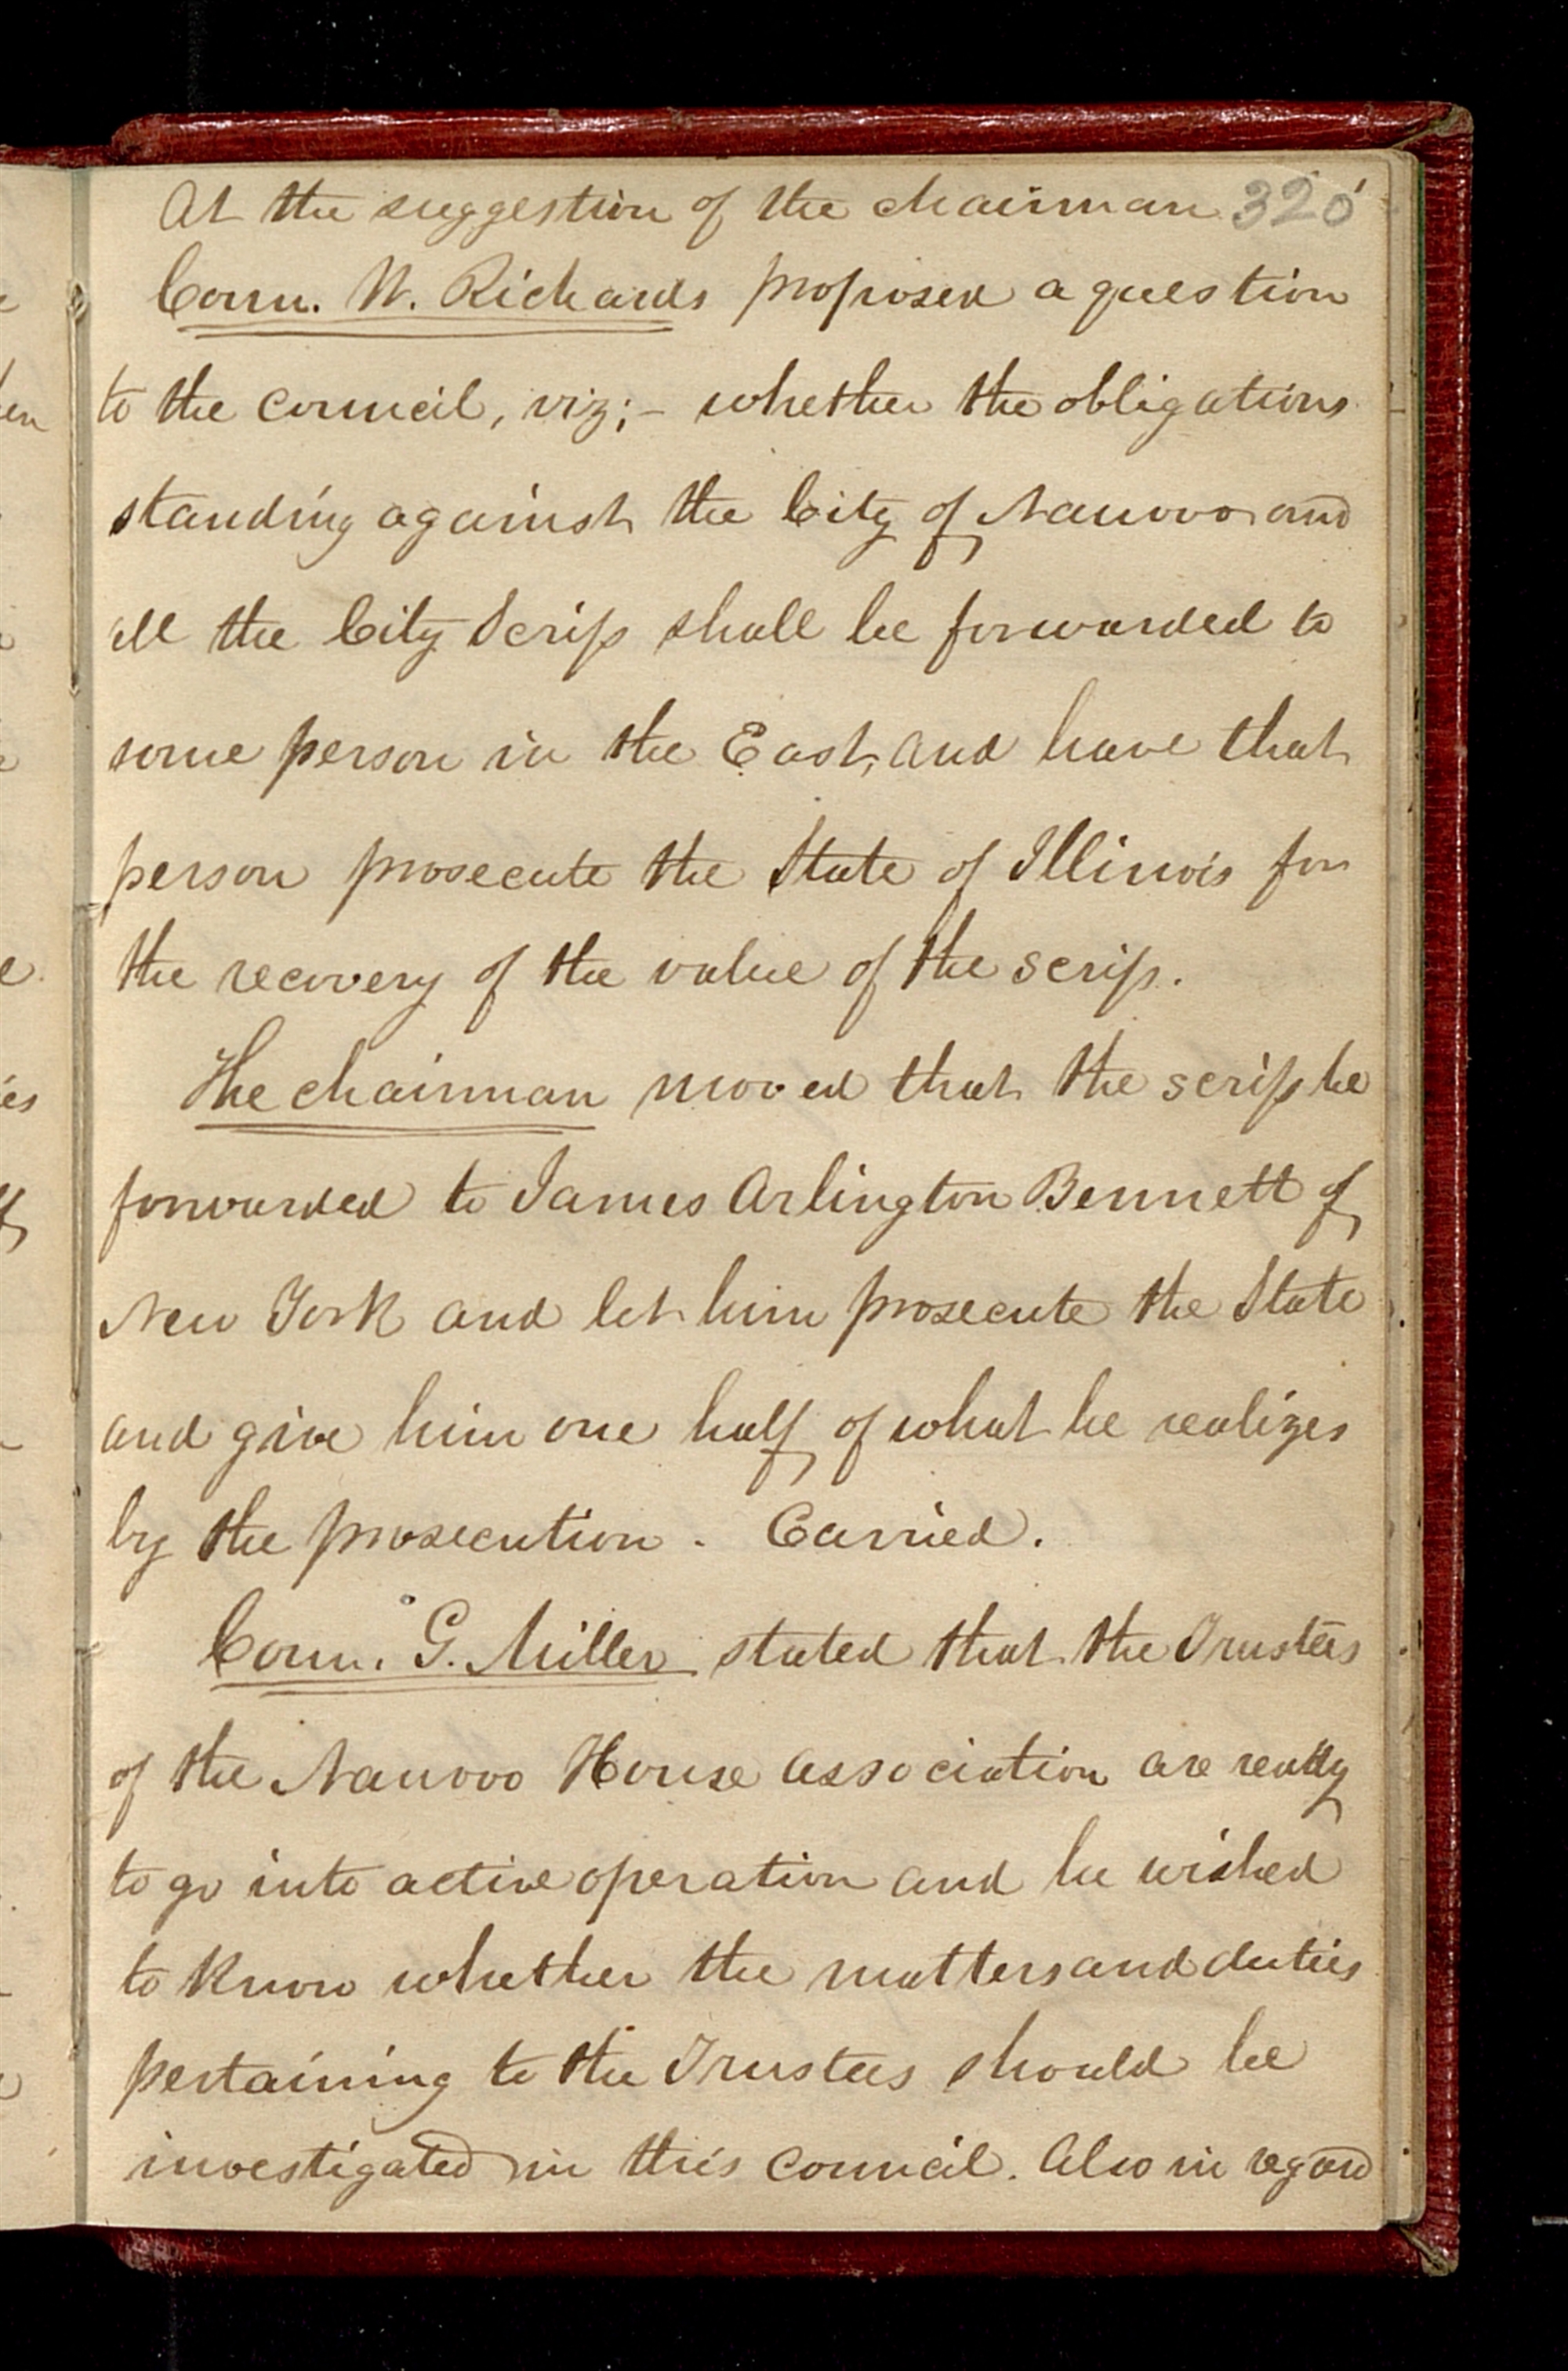 At the suggestion of the chairman 320
Coun. W. Richards proposed a question
to the council, viz;- whether the obligations
standing against the City of Nauvoo and
all the City Scrip shall be forwarded to
some person in the East, and have that
person prosecute the State of Illinois for
the recovery of the value of the scrip.
The chairman moved that the scrip be
forwarded to James Arlington Bennett of
New York and let him prosecute the State
and give him one half of what he realizes
by the prosecution. Carried.
Coun. G. Miller stated that the Trustees
of the Nauvoo House association are ready
to go into active operation and he wished
to know whether the matters and duties
pertaining to the Trustees should be
investigated in this council. Also in regard